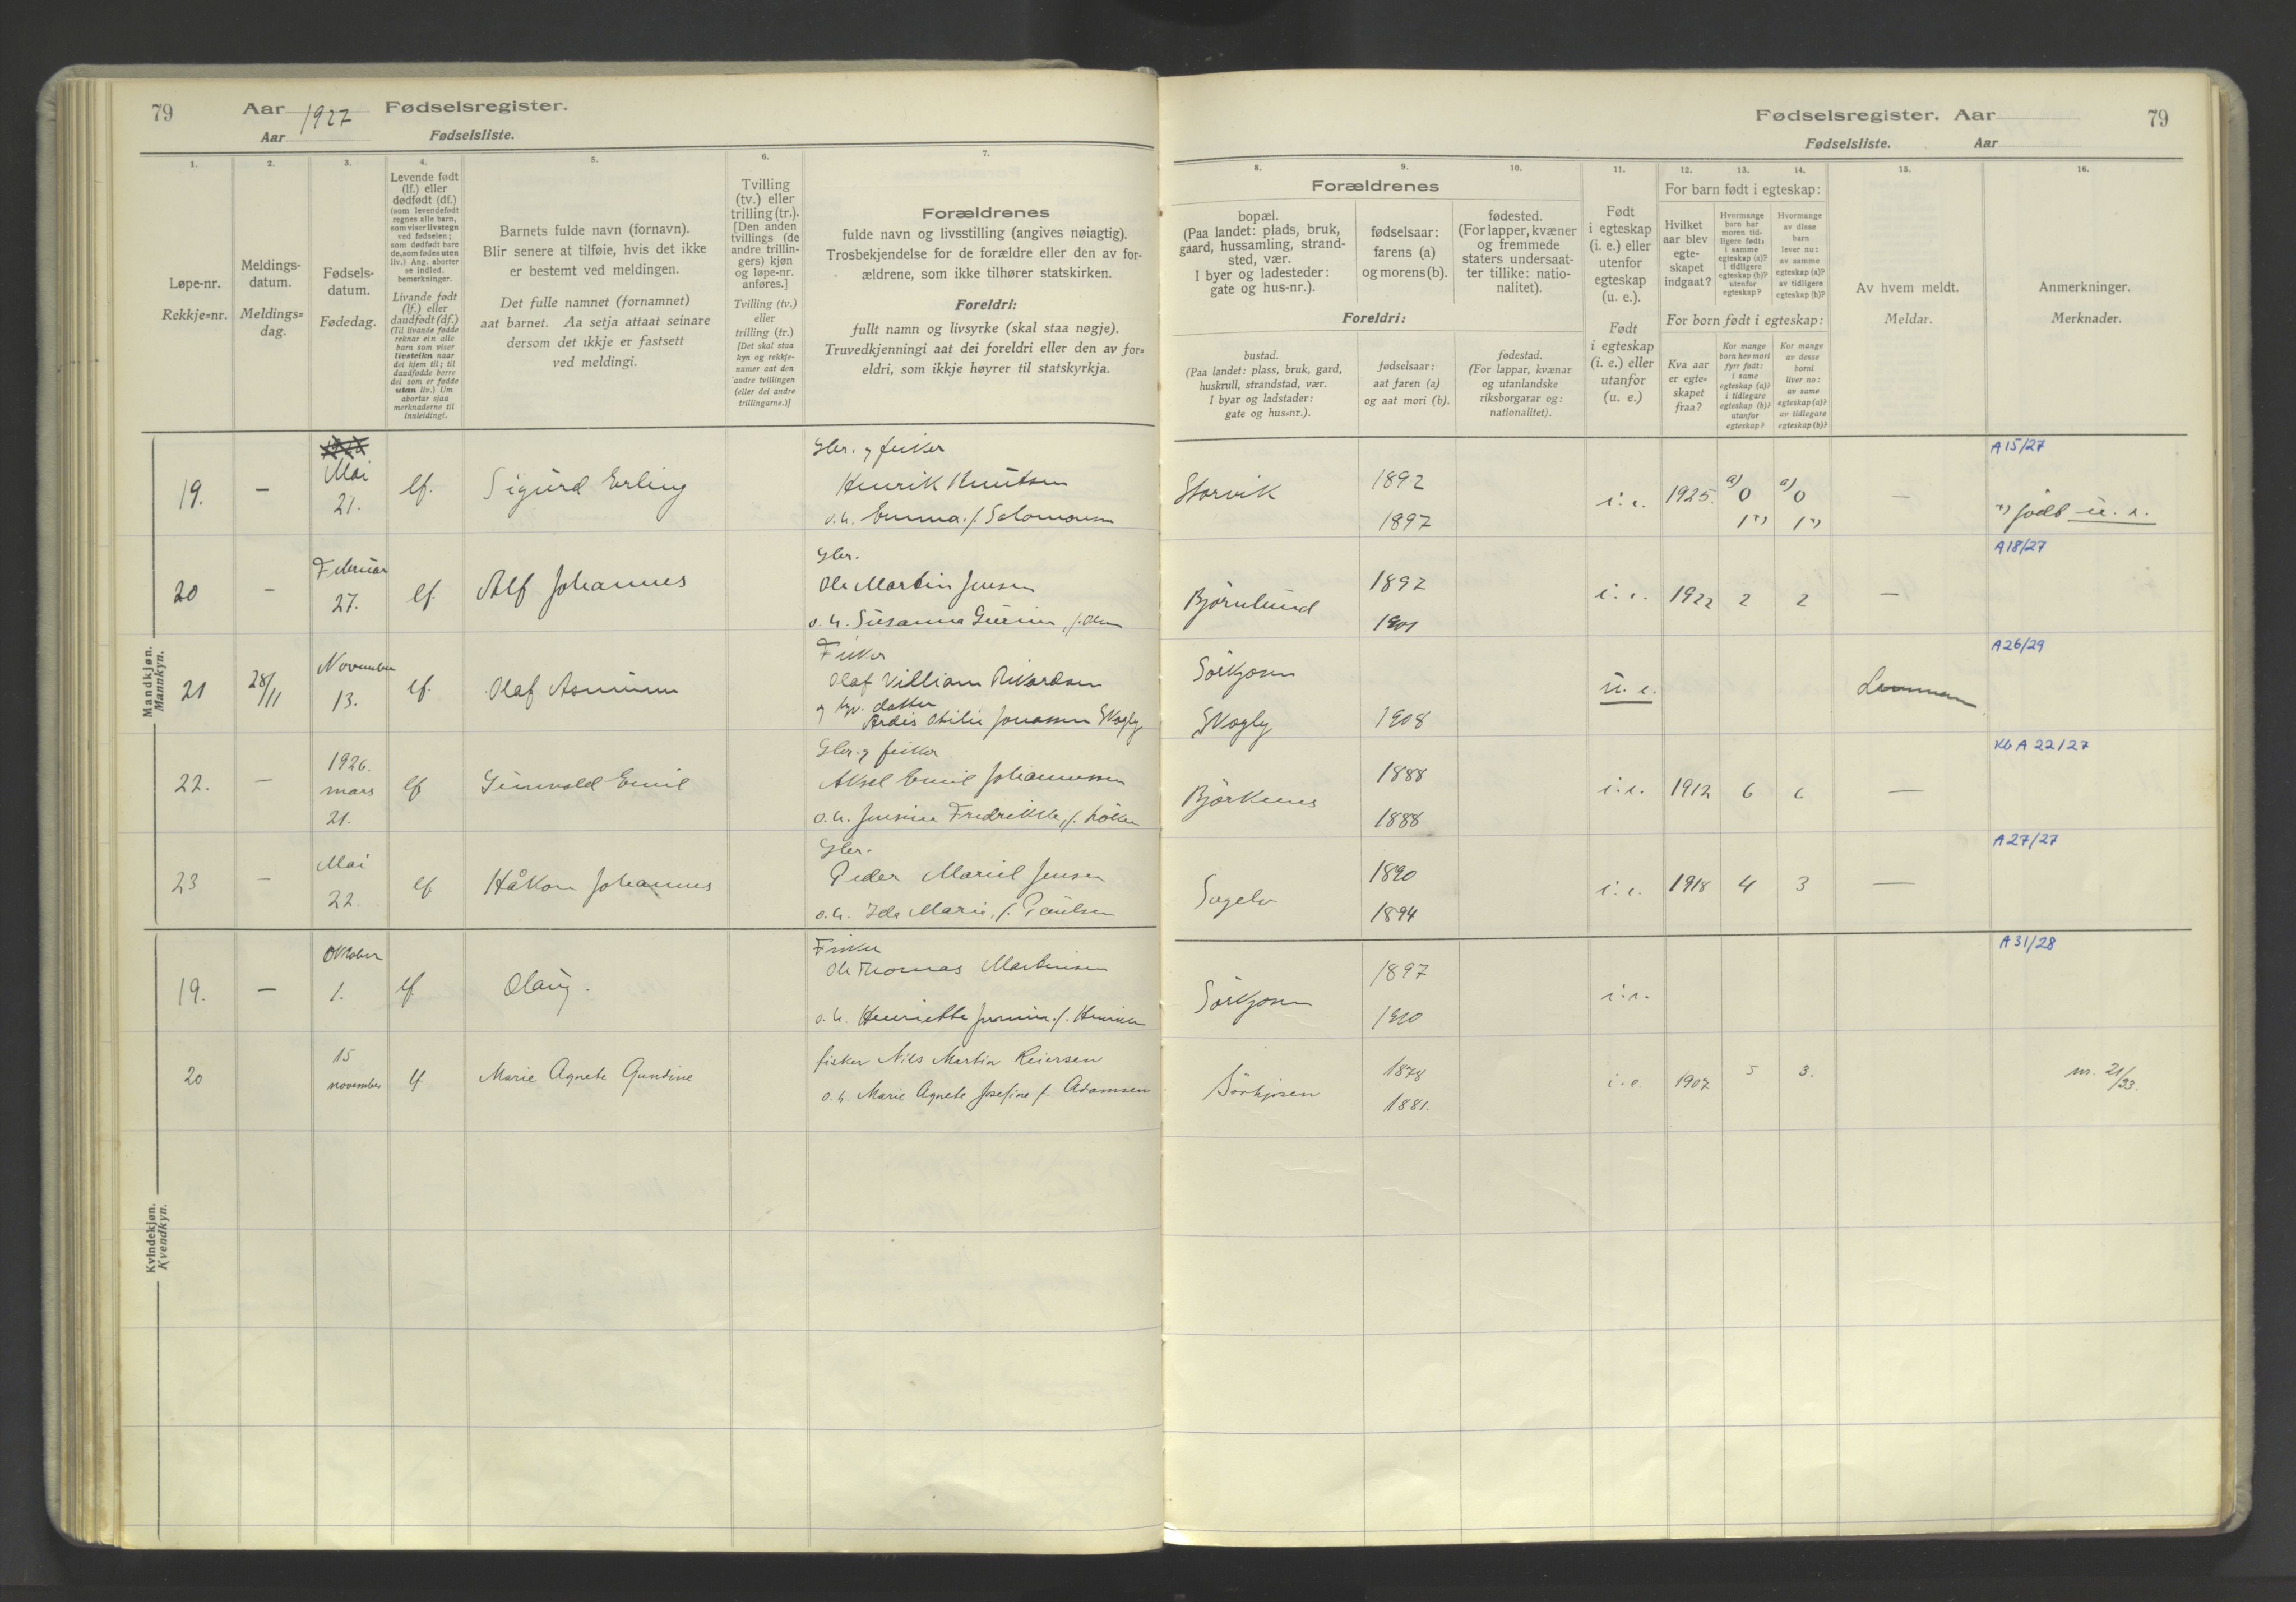 79 Aar 1927 Fødselsregister.
Aar Fødselsliste.
Fødselsregister. Aar 79
Fødselsliste. Aar
1. 2. 3. 4. 5. 6. 7.
Løpe-nr.
Rekkje=nr.
Meldings-
datum.
Meldings=
dag.
Fødsels-
datum.
Fødedag.
Levende født
(lf.) eller
dødfødt (df.)
(som levendefødt
regnes alle barn,
som viser livstegn
ved fødselen;
som dødfødt bare
de, som fødes uten
liv.) Ang. aborter
se indled.
bemerkninger.
Livande født
(lf.) eller
daudfødt (df.)
(Til livande fødde
reknar ein alle
barn som viser
livsteikn naar
dei kjem til; til
daudfødde berre
dei som er fødde
utan liv.) Um
abortar sjaa
merknaderne til
innleidingi.
Barnets fulde navn (fornavn).
Blir senere at tilføie, hvis det ikke
er bestemt ved meldingen.
Det fulle namnet (fornamnet)
aat barnet. Aa setja attaat seinare
dersom det ikkje er fastsett
ved meldingi.
Tvilling
(tv.) eller
trilling (tr.).
[Den anden
tvillings (de
andre trillin-
gers) kjøn
og løpe-nr.
anføres.]
Tvilling (tv.)
eller
trilling (tr.)
[Det skal staa
kyn og rekkje-
numer aat den
andre tvillingen
(eller dei andre
trillingarne.)]
Forældrenes
fulde navn og livsstilling (angives nøiagtig).
Trosbekjendelse for de forældre eller den av for-
ældrene, som ikke tilhører statskirken.
Foreldri:
fullt namn og livsyrke (skal staa nøgje).
Truvedkjenningi aat dei foreldri eller den av for=
eldri, som ikkje høyrer til statskyrkja.
8. 9. 10. 11. 12. 13. 14. 15. 16.
Forældrenes
bopæl.
(Paa landet: plads, bruk,
gaard, hussamling, strand-
sted, vær.
I byer og ladesteder:
gate og hus-nr.).
fødselsaar:
farens (a)
og morens (b).
fødested.
(For lapper, kvæner
og fremmede
staters undersaat-
ter tillike: natio-
nalitet).
Foreldri:
bustad.
(Paa landet: plass, bruk, gard,
huskrull, strandstad, vær.
I byar og ladstader:
gate og hus=nr.).
fødselsaar:
aat faren (a)
og aat mori (b).
fødestad.
(For lappar, kvænar
og utanlandske
riksborgarar og:
nationalitet).
Født
i egteskap
(i. e.) eller
utenfor
egteskap
(u. e.).
Født
i egteskap
(i. e.) eller
utanfor
(u. e.)
For barn født i egteskap:
Hvilket
aar blev
egte-
skapet
indgaat?
Hvormange
barn har
moren tid-
ligere født:
i samme
egteskap (a)?
i tidligere
egteskap (b)?
utenfor
egteskap?
Hvormange
av disse
barn
lever nu:
av samme
egteskap (a)?
av tidligere
egteskap (b)?
For born født i egteskap:
Kva aar
er egte=
skapet
fraa?
Kor mange
born hev mori
fyrr født:
i same
egteskap (a)?
i tidlegare
egteskap (b)?
utanfor
egteskap?
Kor mange
av desse
borni
liver no:
av same
egteskap (a)?
av tidlegare
egteskap (b)?
Av hvem meldt.
Meldar.
Anmerkninger.
Merknader.
Mandkjøn.
Mannkyn.
A15/27
19. – Mai 21. lf. Sigurd Erling
Gbr. og fisker
Henrik Knutsen
o.h. Emma f. Salomonsen
Storvik 1892 1897 i.e. 1925. a) 0 1*) a) 0 1*) – *) født u. e.
A18/27
20 – Februar 27. lf. Alf Johannes
Gbr.
Ole Martin Jensen
o.h. Susanna f. Olsen
Bjørnlund 1897 1901 i.e. 1922 2 2 –
A26/29
21 28/11 November 13. lf. Olaf Asmunn
Fisker
Olaf Villiam Rikardsen
og tj. datter
Ardis Otilie Jonassen Skogly
Sørkjosen
Skogly 1908 u. e.
KbA 22/27
22. – 1926. mars 21. lf Gunvald Emil
Gbr. og fisker
Aksel Emil Johannessen
o.h. Jensine Fredrikke, f.
Bjørknes 1888 1888 i.e. 1912 6 6 –
A27/27
23 – Mai 22. lf Håkon Johannes
Gbr.
Peder Mariel Jensen
o.h. Ida Marie, f. Paulsen
Sagelv 1890 1894 i.e. 1918 4 3 –
Kvindekjøn.
Kvendkyn.
A31/28
19. – Oktober 1. lf Olaug.
Fisker
Ole Thomas Martinsen
o.h. Henriette f. Henriksen
Sørkjosen 1897 1900 i.e.
20 15 november lf Marie Agnete Gundine
fisker Nils Martin Reiersen
o.h. Marie Agnete Josefine f. Adamsen
Sørkjosen 1878 1881. i.e. 1907. 5 3. nr. 21/33.